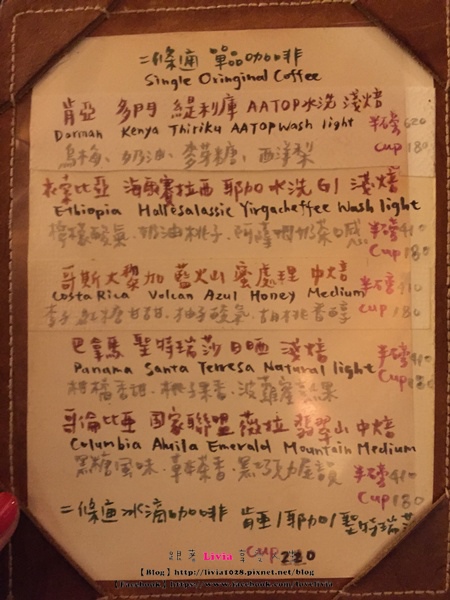 二條通 單品咖啡
Single Oringinal Coffee
肯亞 多門 緹利庫 AATOP水洗 淺焙
Dorman Kenya Thiriku AATOP Wash light 半磅620
烏梅、奶油、麥芽糖、西洋梨 cup 180
衣索比亞 海爾賽拉西 耶加 水洗 G1 淺焙
Ethiopia Hallesalassic Yirgacheffee Wash light
檸檬酸氣、奶油桃子、阿薩姆奶茶 半磅410
cup 180
哥斯大黎加 藍火山 蜜處理 中焙
Costa Rica Volcan Azul Honey Medium 半磅410
李子 紅糖甘甜、柚子酸氣、胡桃香醇 cup 180
巴拿馬 聖特瑞莎 日曬 淺焙
Panama Santa Terresa Natural light 半磅410
柑橘香甜、桃子果香、波蘿蜜 果 cup 180
哥倫比亞 國家聯盟 薇拉 翡翠山 中焙
Columbia Ahuila Emerald Mountain Medium
黑糖風味、草本茶香、黑巧克力尾韻 半磅410
cup 180
二條通 冰滴咖啡 肯亞/耶加/聖特瑞莎
cup 220
跟著 Livia
【Blog】http://livia1028.pixnet.net/blog
【Facebook】https://www.facebook.com/lovelivia